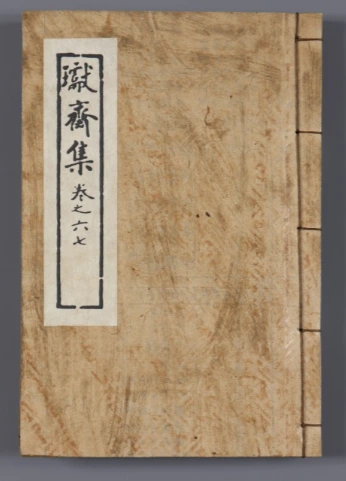 瓛齋集 卷之六七